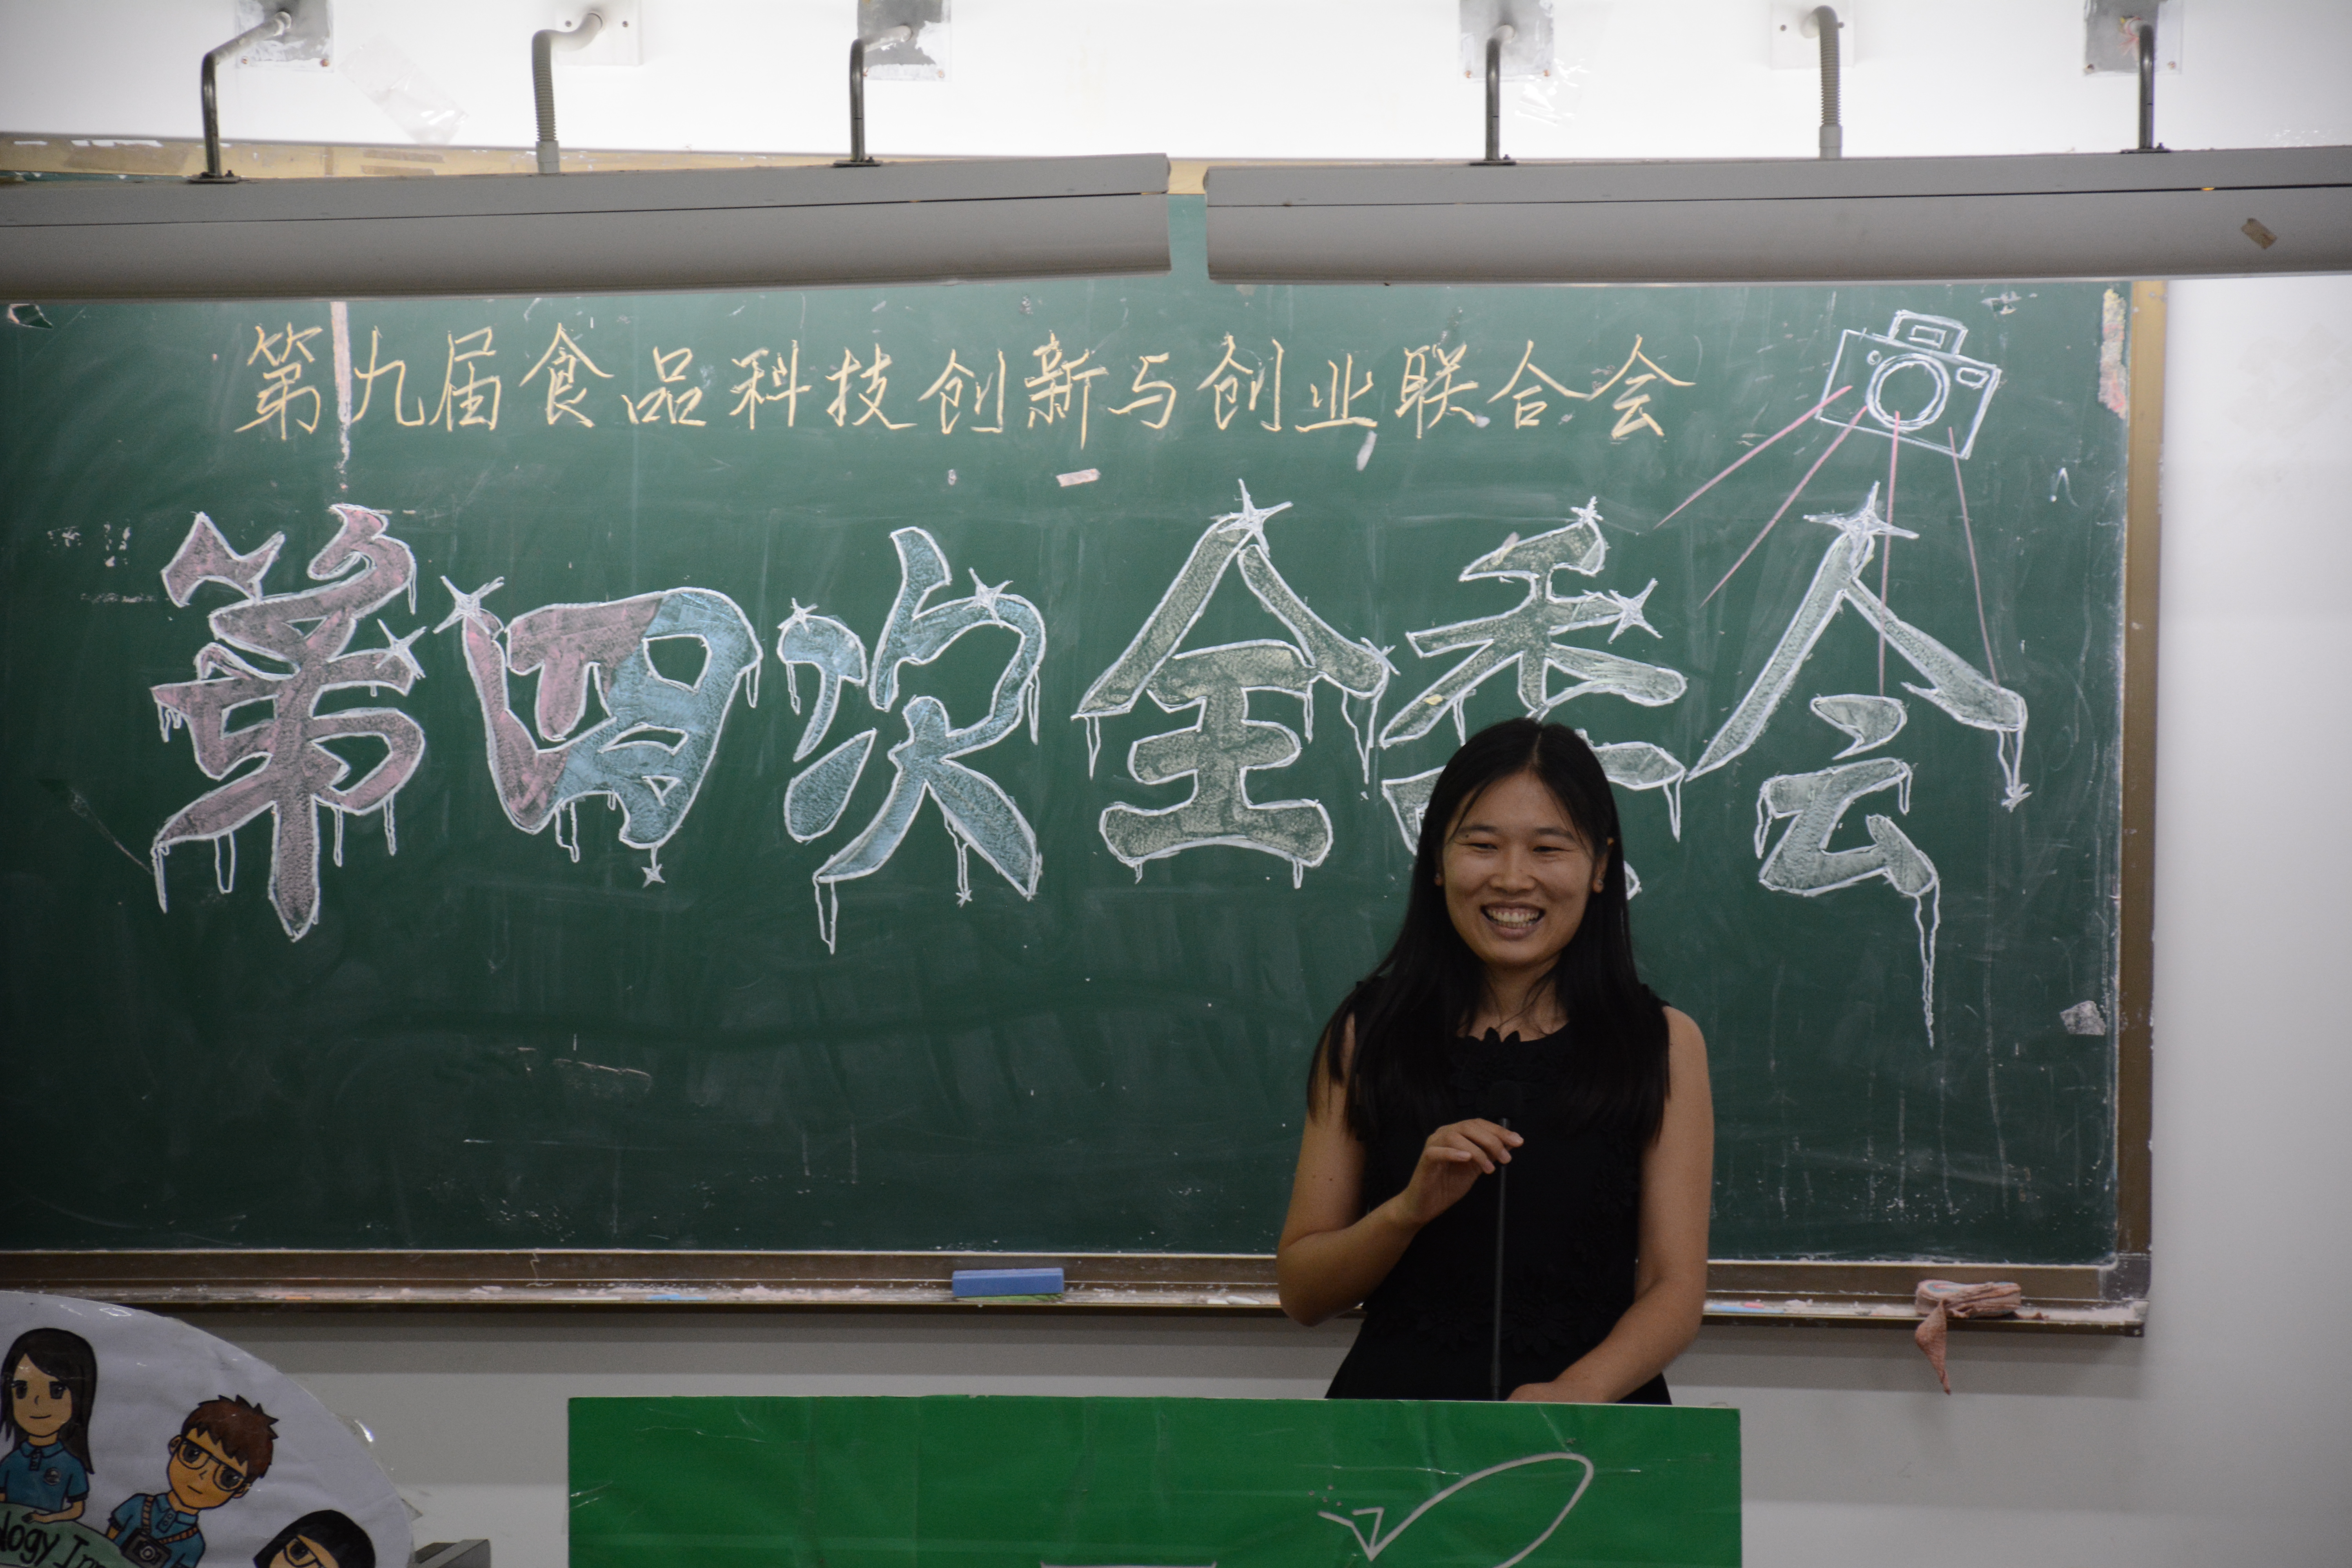 第九届食品科技创新与创业联合会
第四次全委会